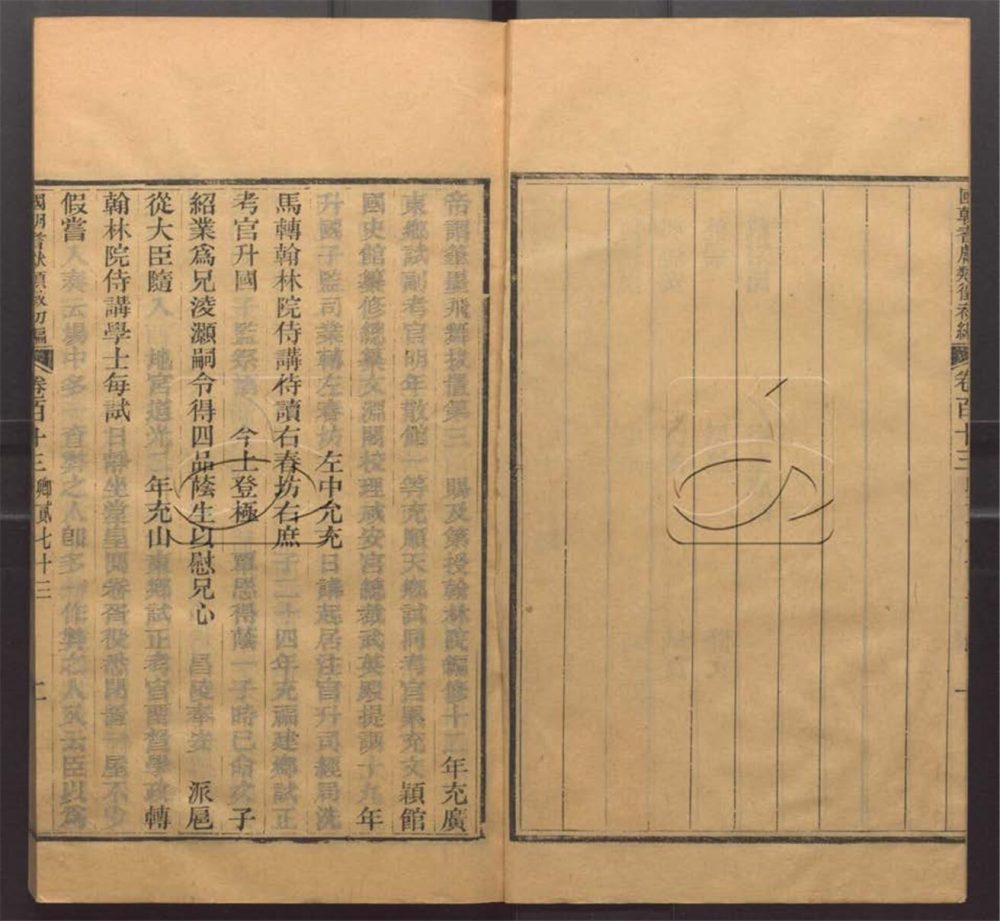 卷百十三
一
帝謂筆墨飛舞拔置第三 賜及第授翰林院編修十二年充廣
東鄉試副考官明年散館一等充順天鄉試同考官累充文穎館
國史館纂修總纂文淵閣校理咸安宮總裁武英殿提調十九年
升國子監司業轉左春坊左中允充日講起居注官升司經局洗
馬轉翰林院侍講侍讀右春坊右庶子二十四年充福建鄉試正
考官升國子監祭酒 今上登極覃恩得蔭一子時已命次子
紹業為兄淩灝嗣令得四品蔭生以慰兄心 昌陵奉安 派扈
從大臣隨入 地宮道光二年充山東鄉試正考官留督學政轉
翰林院侍講學士每試日靜坐堂皇閱卷胥役悉閉置一屋不少
假嘗入奏云場中多一查弊之人卽多一作弊之人又云臣以為
國朝耆獻類徵初編 卷百十三 卿貳七十三 二